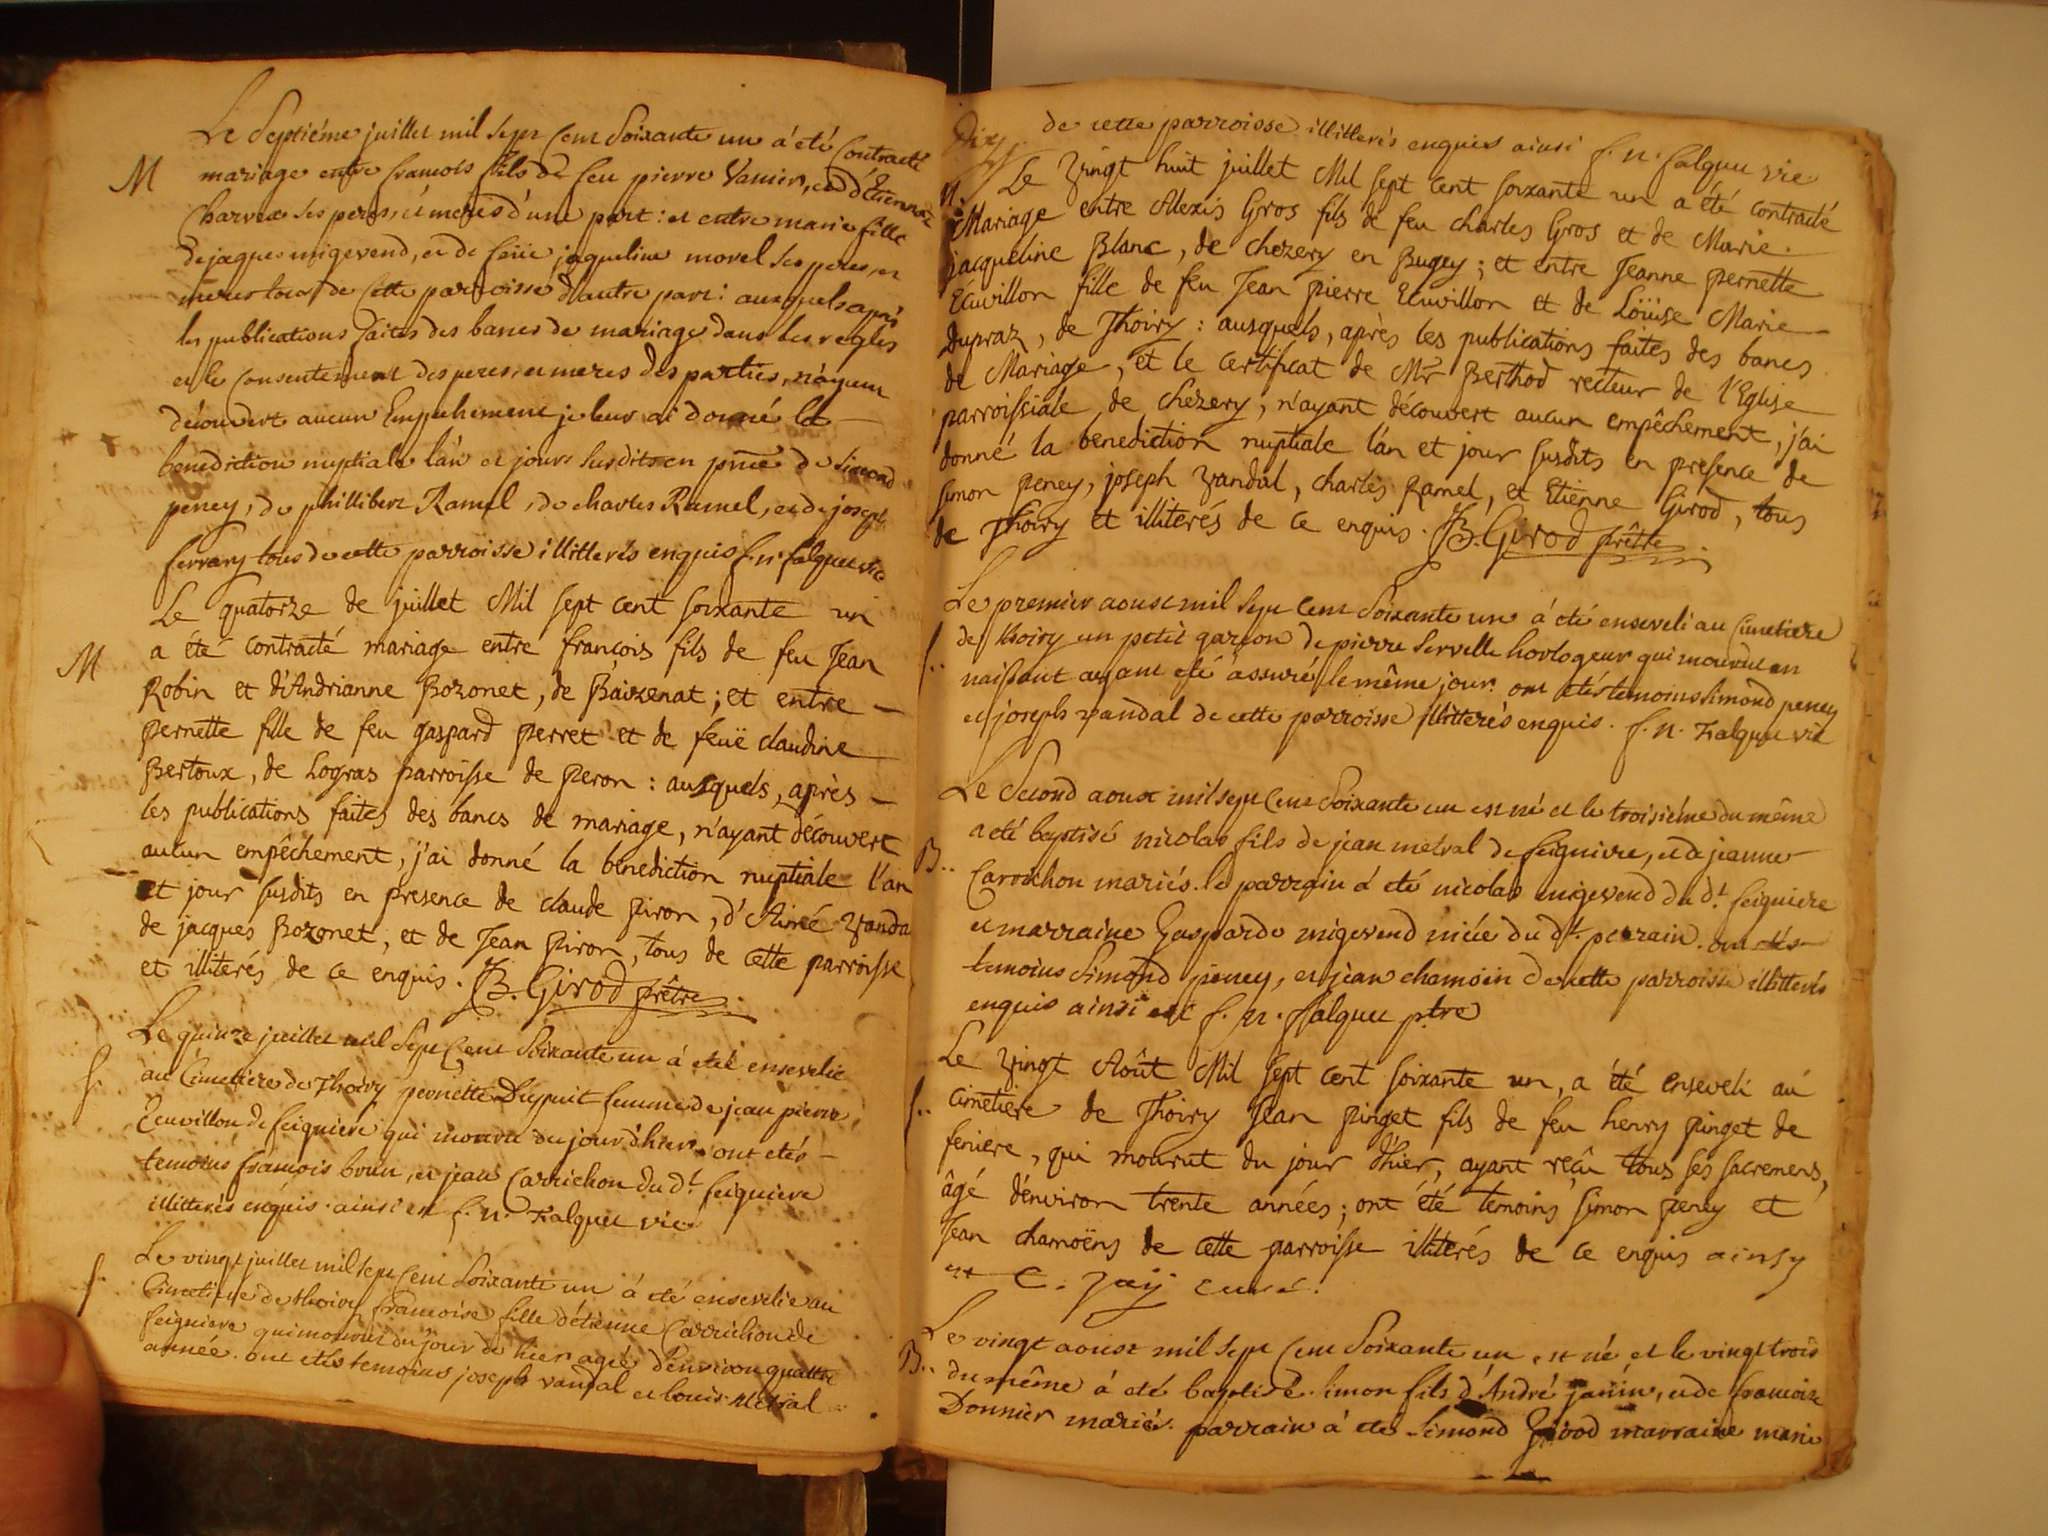 Le Septiéme juillet mil sept Cent Soixante un á été Contracté
M mariage entre francois fils de feu pierre Vanier, et d'Etiennette
Charvex ses peres, et meres d'une part : et entre marie fille
de jaques migevend, et de feüe jaqueline morel ses peres, et
meres tous de Cette parroisse d'autre part : auxquels apres
les publications faites des bancs de mariage dans les regles
et le Consentement des peres, et meres des parties, n'ayant
découvert aucun Empechement je leur ai donné la
benediction nuptiale l'an et jour susdits en pnce de Simond
peney, de phillibert Ramel, de charles Ramel, et de joseph
ferrary tous de cette parroisse illitterés enquis f. n. falquet vic
Le quatorze de juillet Mil sept cent soixante un
M a été contracté mariage entre francois fils de feu Jean
Robin et d'Andrianne Bozonet, de Baizenat ; et entre
pernette fille de feu gaspard perret et de feuë claudine
Bertoux, de Logras parroisse de peron : ausquels, après
les publications faites des bancs de mariage, n'ayant découvert
aucun empêchement, j'ai donné la benediction nuptiale l'an
et jour susdits en presence de claude piron, d'Aimé vanda
de jacques Bozonet, et de Jean piron, tous de cette parroisse
et illiterés de ce enquis. JB. Girod prêtre
Le quinze juillet mil sept Cent Soixante un á eté ensevelie
f. au Cimetiere de Thoiry pernette Dupuit femme de jean pierre
Ecuvillon de feigniere qui mourut du jour d'hier. ont etés
temoins francois brun, et jean Carrichon du dt feigniere
illitterés enquis. ainsi est f. n. falquet vic
Le vingt juillet mil sept Cent Soixante un á eté ensevelie au
f. Cimetiere de thoiry francoise fille d'étienne Carrichon de
feigniere qui mourut du jour de hier agée d'environ quattre
année. ont etés temoins joseph vandal et louis metral
de cette parroisse illitterés enquis ainsi f. n. falquet vic
Dix
Le vingt huit juillet Mil sept cent soixante un a été contracté
M. Mariage entre Alexis Gros fils de feu charles Gros et de Marie
jacqueline Blanc, de chezery en Bugey ; et entre Jeanne pernette
Ecuvillon fille de feu Jean pierre Ecuvillon et de Loüise Marie
Dupraz, de Thoiry : ausquels, après les publications faites des bancs
de Mariage, et le certificat de Mr Berthod recteur de l'Eglise
parroissiale de chezery, n'ayant découvert aucun empêchement, j'ai
donné la benediction nuptiale l'an et jour susdits en presence de
simon peney, joseph vandal, charles Ramel, et Etienne Girod, tous
de Thoiry et illiterés de ce enquis. JB. Girod prêtre
Le premier aoust mil sept Cent Soixante un á été enseveli au Cimetiere
f.. de thoiry un petit garcon de pierre Servelle horlogeur qui mourut en
naissant ayant eté assuré le même jour. ont etés temoins simond peney
et joseph vandal de cette parroisse illitterés enquis. f. n. falquet vic
Le Second aoust mil sept Cent Soixante un est né et le troisiéme du même
B.. a eté baptisé nicolas fils de jean metral de feigniere, et de jeanne
Carrichon mariés. le parrain á eté nicolas migevend du dt. feigniere
et marraine Gasparde migevend niéce du dt. parrain. ont etés
temoins Simond peney, et jean chamoin de cette parroisse illitterés
enquis ainsi est f. n. falquet ptre
Le vingt Août Mil sept cent soixante un, a été enseveli au
f.. cimetiere de Thoiry Jean pinget fils de feu henry pinget de
feniere, qui mourut du jour d'hier, ayant reçû tous ses sacremens,
âgé d'environ trente années ; ont été temoins simon peney et
Jean chamoëns de cette parroisse illiterés de ce enquis ainsy
est C. Jaÿ curé.
Le vingt aoust mil sept Cent Soixante un est né et le vingt trois
B.. du même á eté baptisé Simon fils d'André janin, et de francoise
Donnier mariés. parrain á eté Simond Girod marraine marie